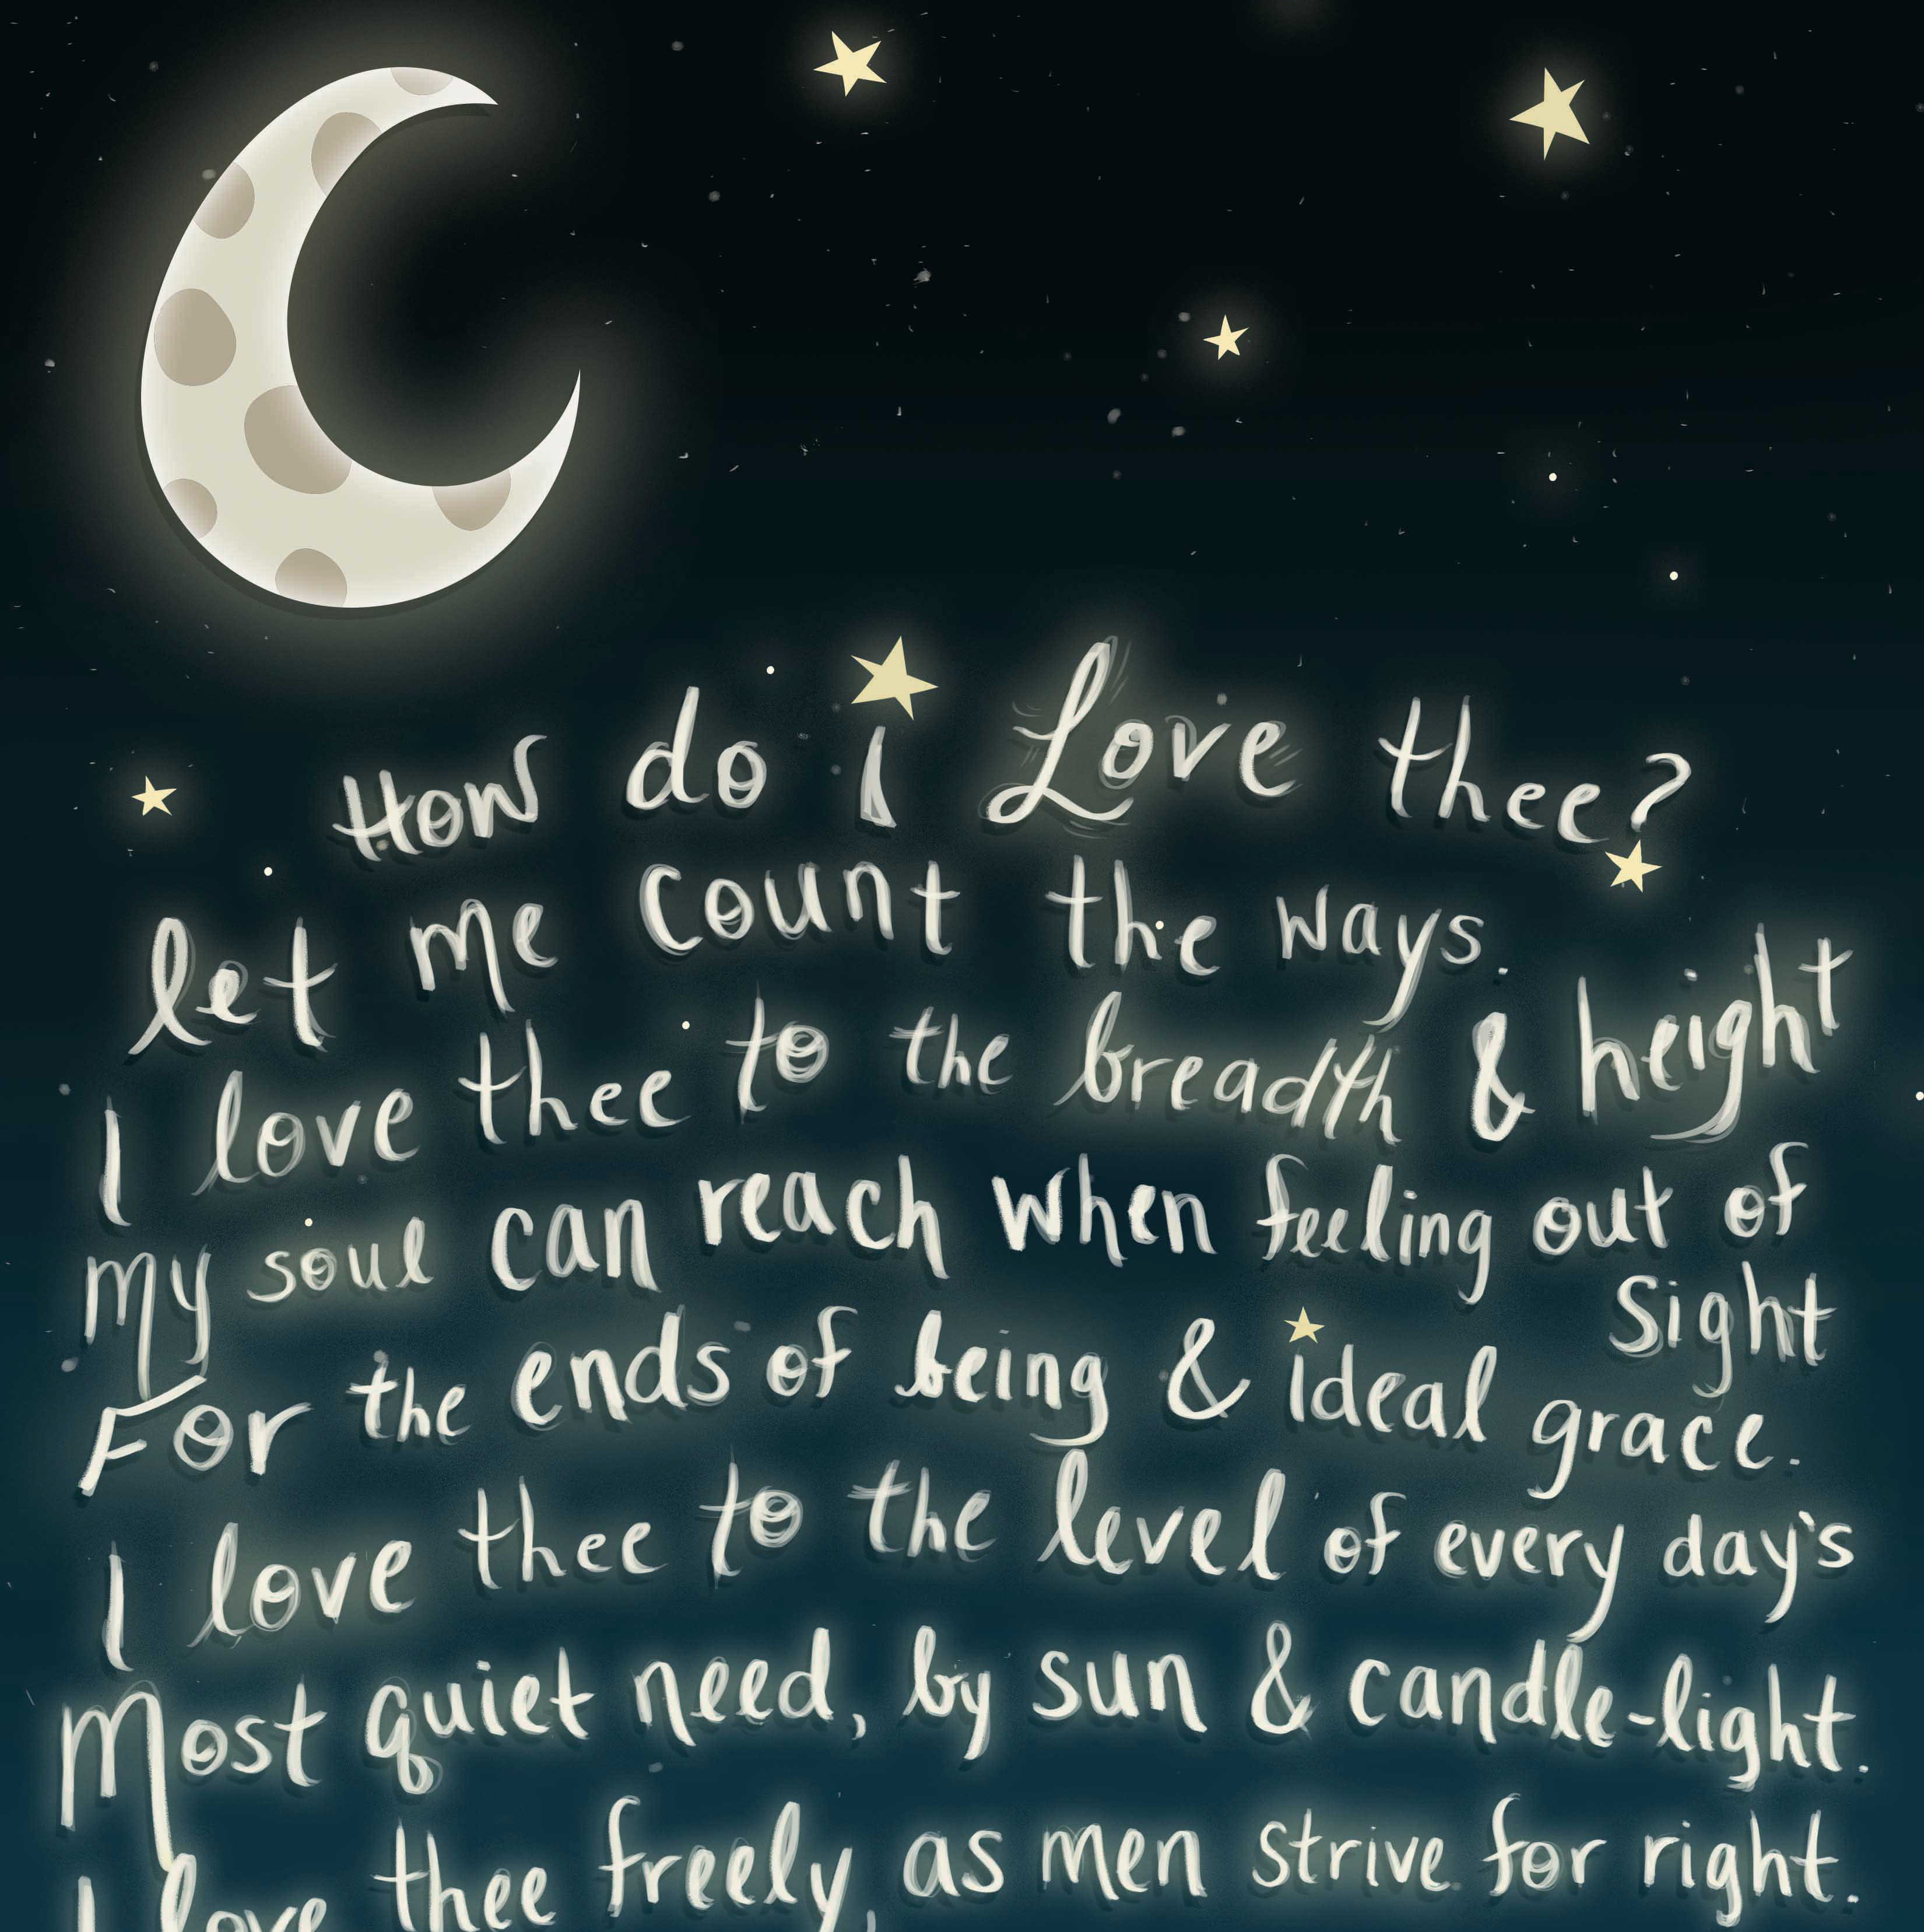 How do i Love thee?
let me count the ways.
I love thee to the breadth & height
my soul can reach when feeling out of
sight
For the ends of being & ideal grace.
I love thee to the level of every day's
Most quiet need, by sun & candle-light.
I love thee freely, as men strive for right.